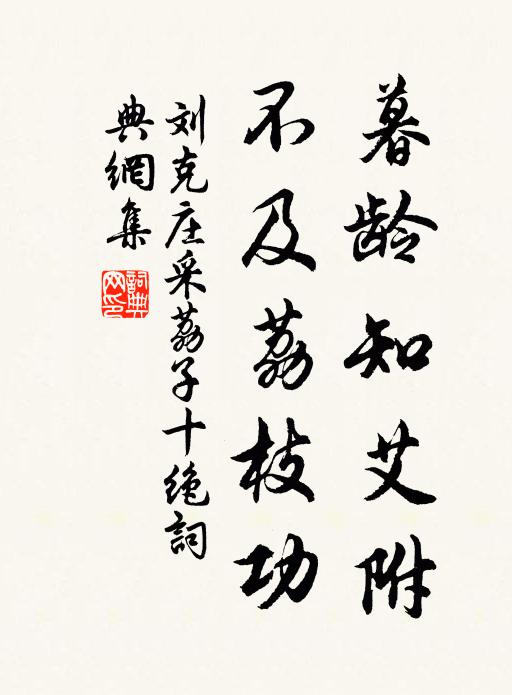 暮龄知艾附
不及荔枝功
刘克庄采荔子十绝詞
典網集
詞典网印